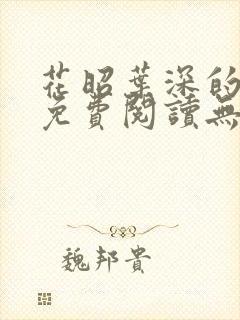 花昭葉深的
免費閱讀無
魏邦貴